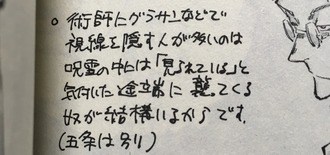 ○ 術師にグラサンなどで
視線を隠す人が多いのは
呪霊の中には「見られている」と
気付いた途端に襲ってくる
奴が結構いるからです。
(五条は別)